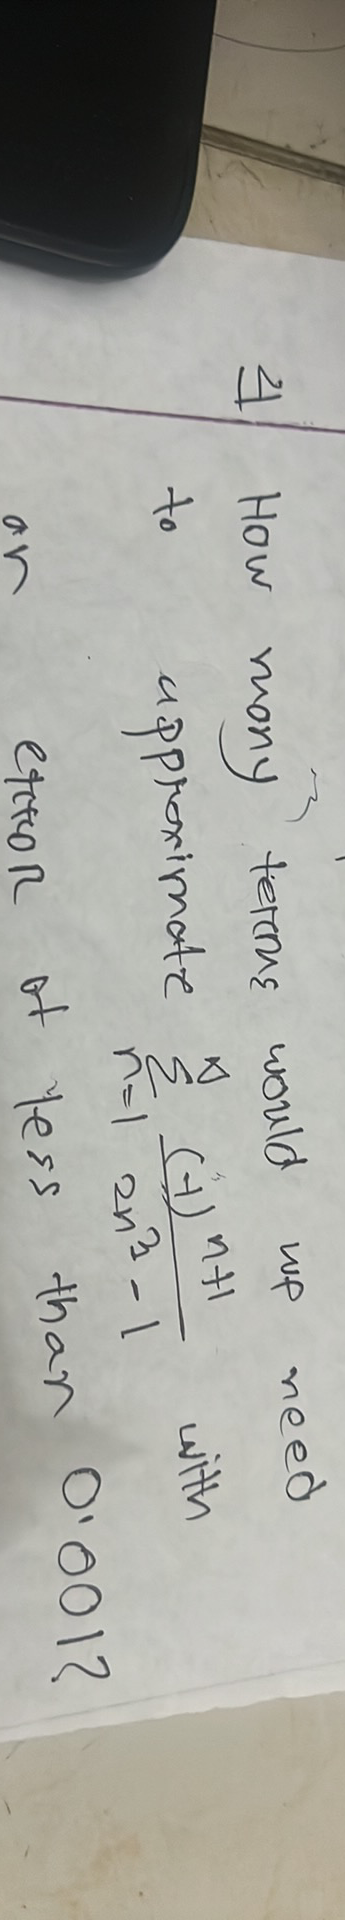 4 How many terms would we need
to approximate ∞ Σ n=1 (-1)^{n+1} / 2n³ - 1 with
an error of less than 0.001?